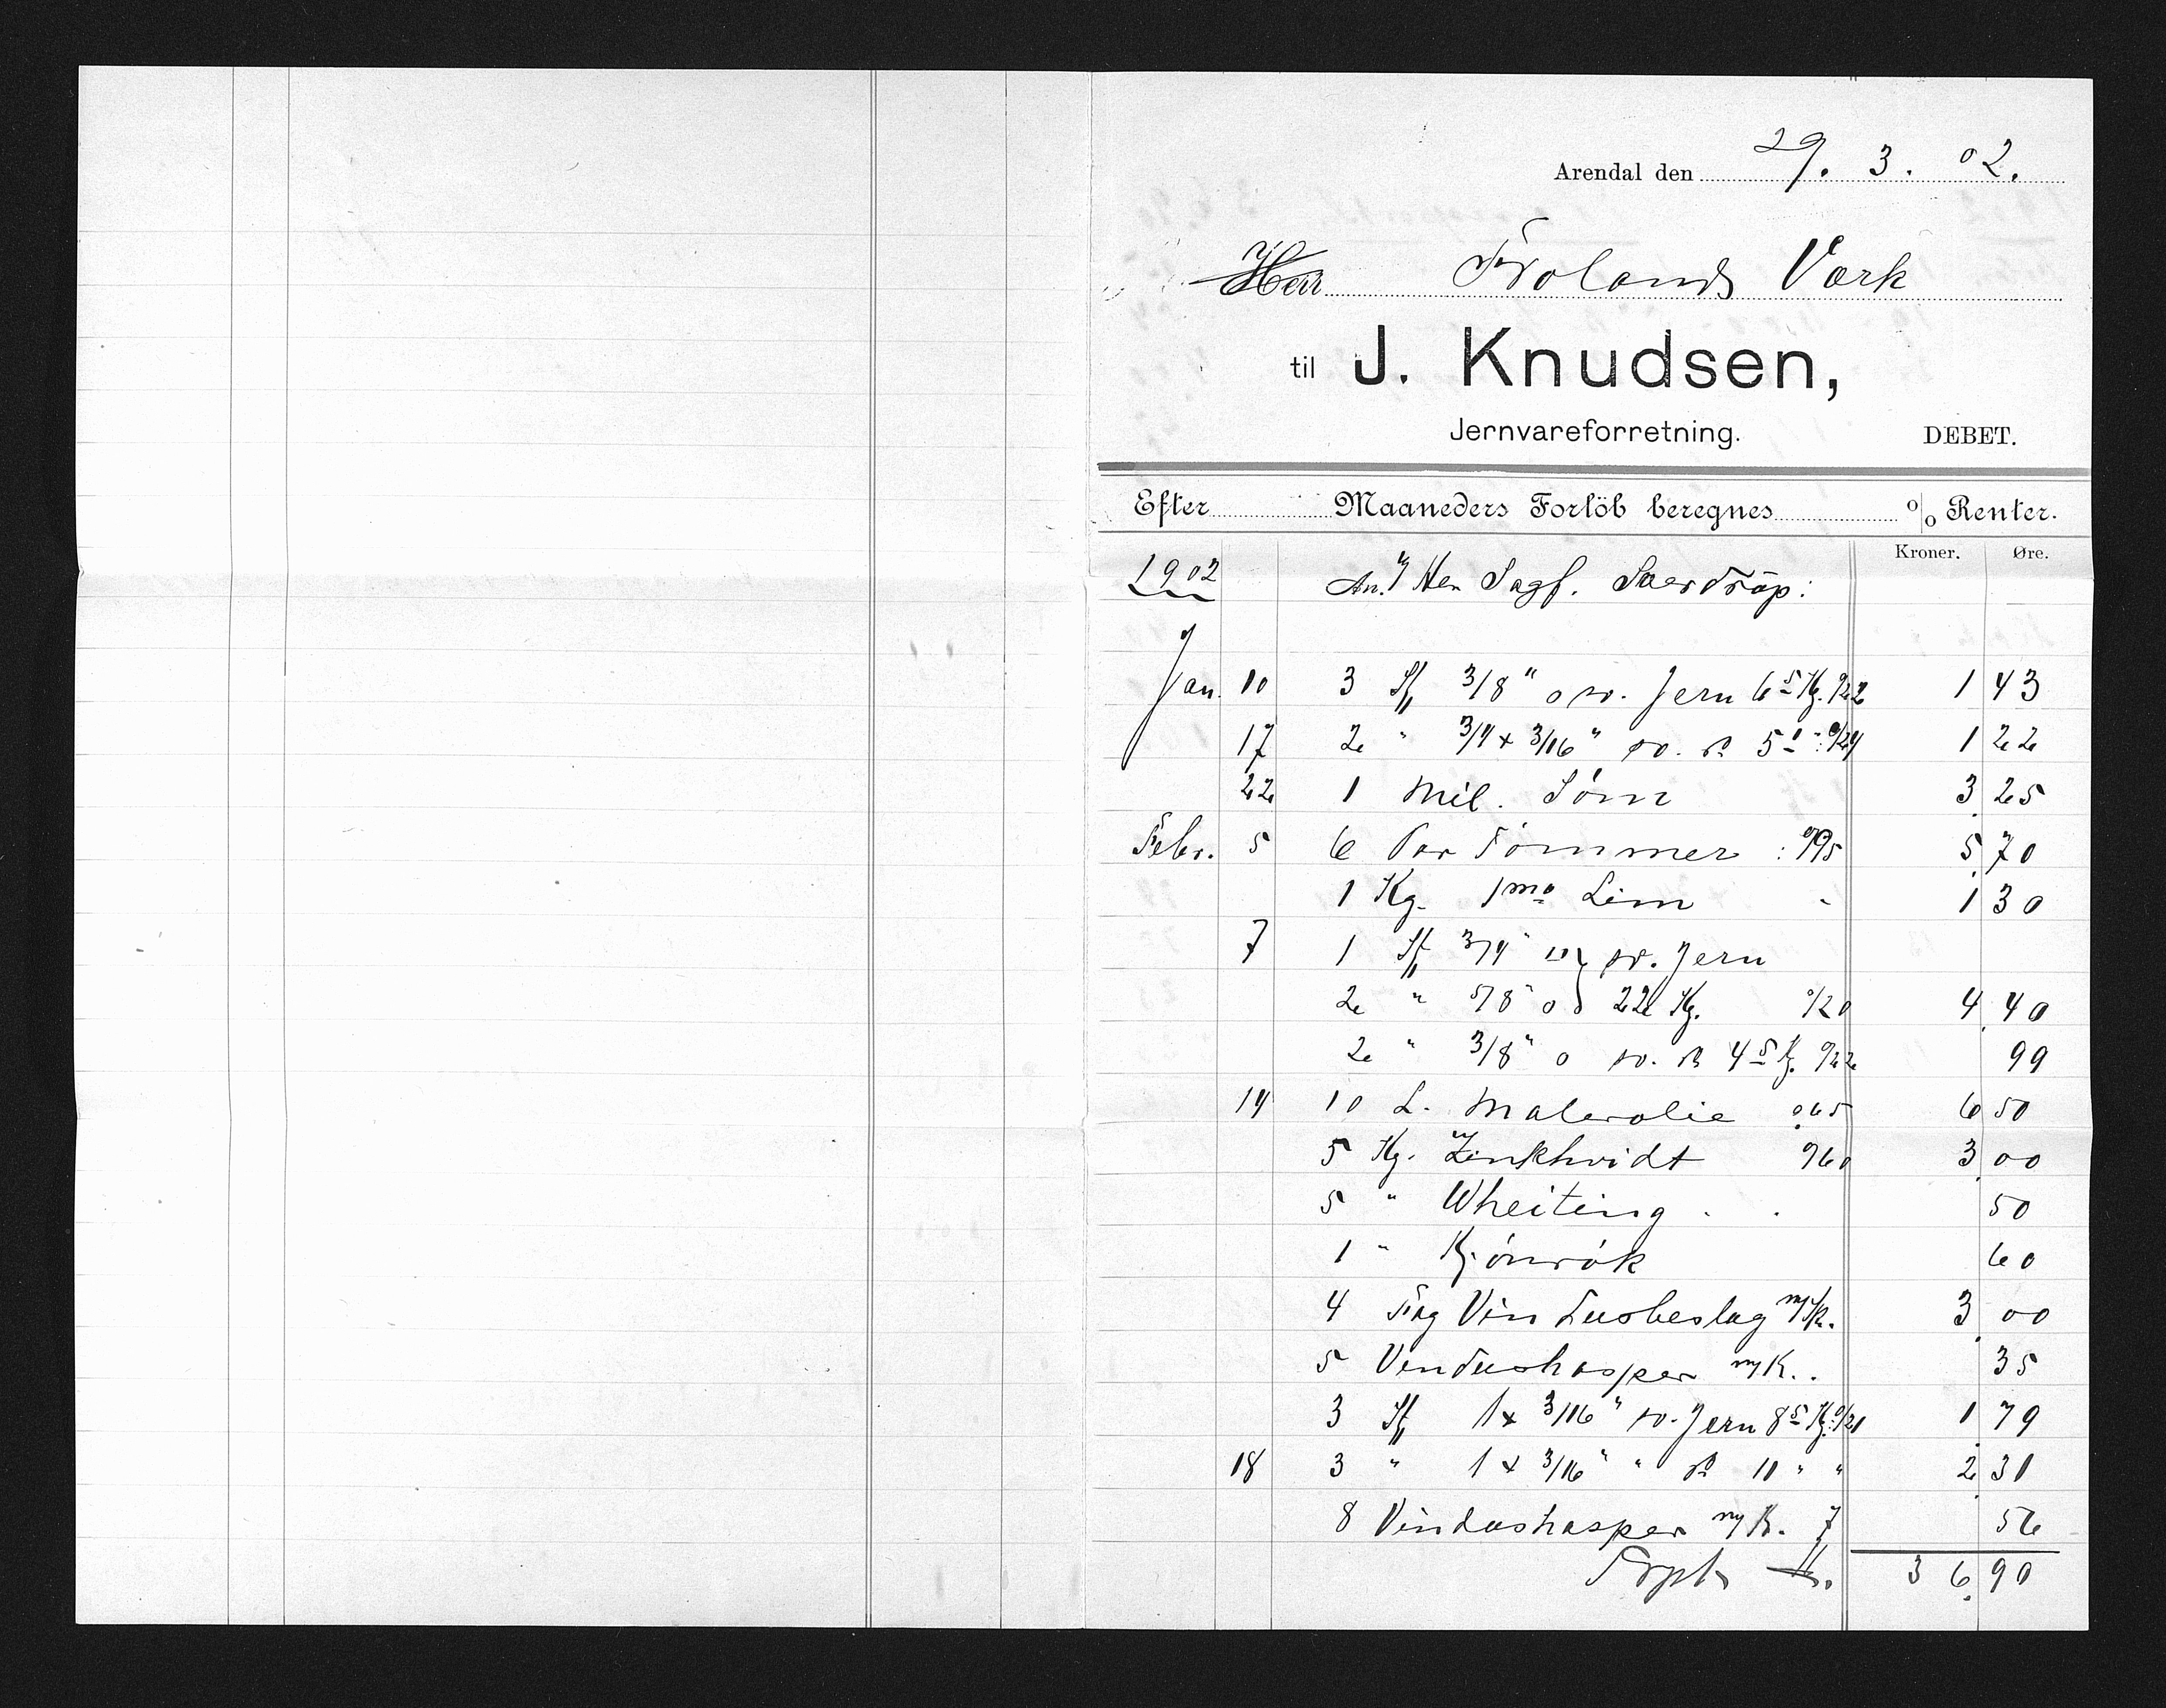 Arendal den 29. 3. 02.
Herr Frolands Værk
til J. Knudsen,
Jernvareforretning. DEBET.
Efter Maaneders Forlöb beregnes % Renter.
Kroner. Øre.
1902 Sagf.
Jan. 10 3 St. 3/8" o sv. Jern 6 5 Kg. 0/22 1 43
17 2 " 3/4 x 3/16" sv. 5 1 " 0/24 1 22
22 1 Mil. Söm 3 25
Febr. 5 6 Par Tömmer : 0/95 5 70
1 Kg. 1ma Lim 1 30
7 1 St. 3/4" sv. Jern
2 " 5/8" o 22 Kg. 0/20 4 40
2 " 3/8" o sv. 4 5 Kg. 0/22 99
14 10 L. Malerolie 065 6 50
5 Kg. Zinkhvidt 0/60 3 00
5 " Wheiting 50
1 " Kjönrök 60
4 Fag Vindusbeslag m/K. 3 00
5 Vindushasper m/K. 35
3 St. 1 x 3/16" sv. Jern 8 5 Kg. 0/21 1 79
18 3 " 1 x 3/16" " 11 " " 2 31
8 Vindushasper m/K. 7 56
Trpt. Kr. 36 90